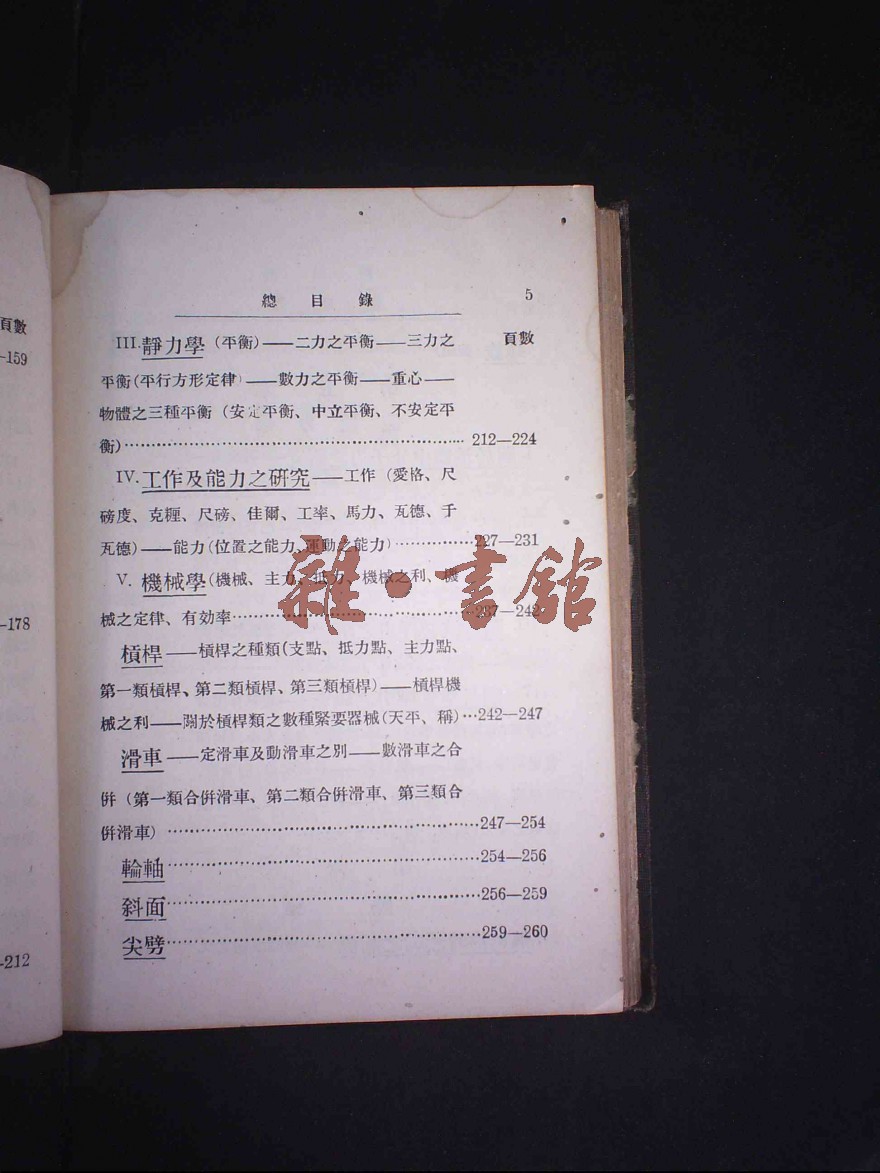 總目錄 5
頁數
III.靜力學（平衡）——二力之平衡——三力之
平衡(平行方形定律)——數力之平衡——重心——
物體之三種平衡（安定平衡、中立平衡、不安定平
衡)…………………………………………………… 212—224
IV.工作及能力之研究——工作（愛格、尺
磅度、克糎、尺磅、佳爾、工率、馬力、瓦德、千
瓦德）——能力(位置之能力、運動之能力)……………227—231
V. 機械學(機械、主力、抵力、機械之利、機
械之定律、有効率……………………………………237—242
槓桿——槓桿之種類(支點、抵力點、主力點、
第一類槓桿、第二類槓桿、第三類槓桿)——槓桿機
械之利——關於槓桿類之數種緊要器械(天平、稱)…242—247
滑車——定滑車及動滑車之別——數滑車之合
併（第一類合併滑車、第二類合併滑車、第三類合
併滑車）……………………………………………247—254
輪軸……………………………………………254—256
斜面……………………………………………256—259
尖劈……………………………………………259—260
頁數
—159
—178
—212
雜·書館